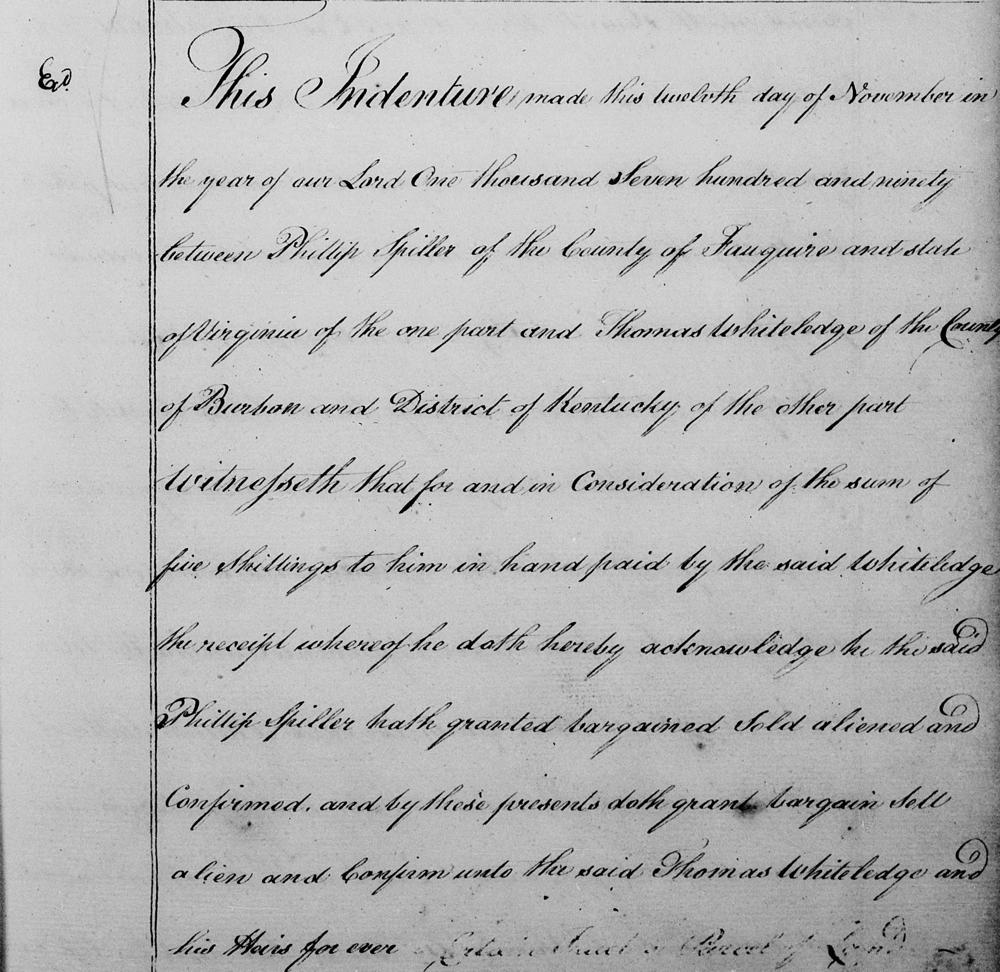 Exd.
This Indenture, made this twelvth day of November in
the year of our Lord One thousand Seven hundred and ninety
between Phillip Spiller of the County of Fauquire and state
of Virginia of the one part and Thomas Whiteledge of the County
of Burbon and District of Kentucky of the other part
Witnesseth that for and in Consideration of the sum of
five Shillings to him in hand paid by the said Whiteledge
the receipt whereof he doth hereby acknowledge he the said
Phillip Spiller hath granted bargained Sold aliened and
Confirmed. and by these presents doth grant bargain Sell
alien and Confirm unto the said Thomas Whiteledge and
his Hairs for ever Certain Tract or Parcel of Land